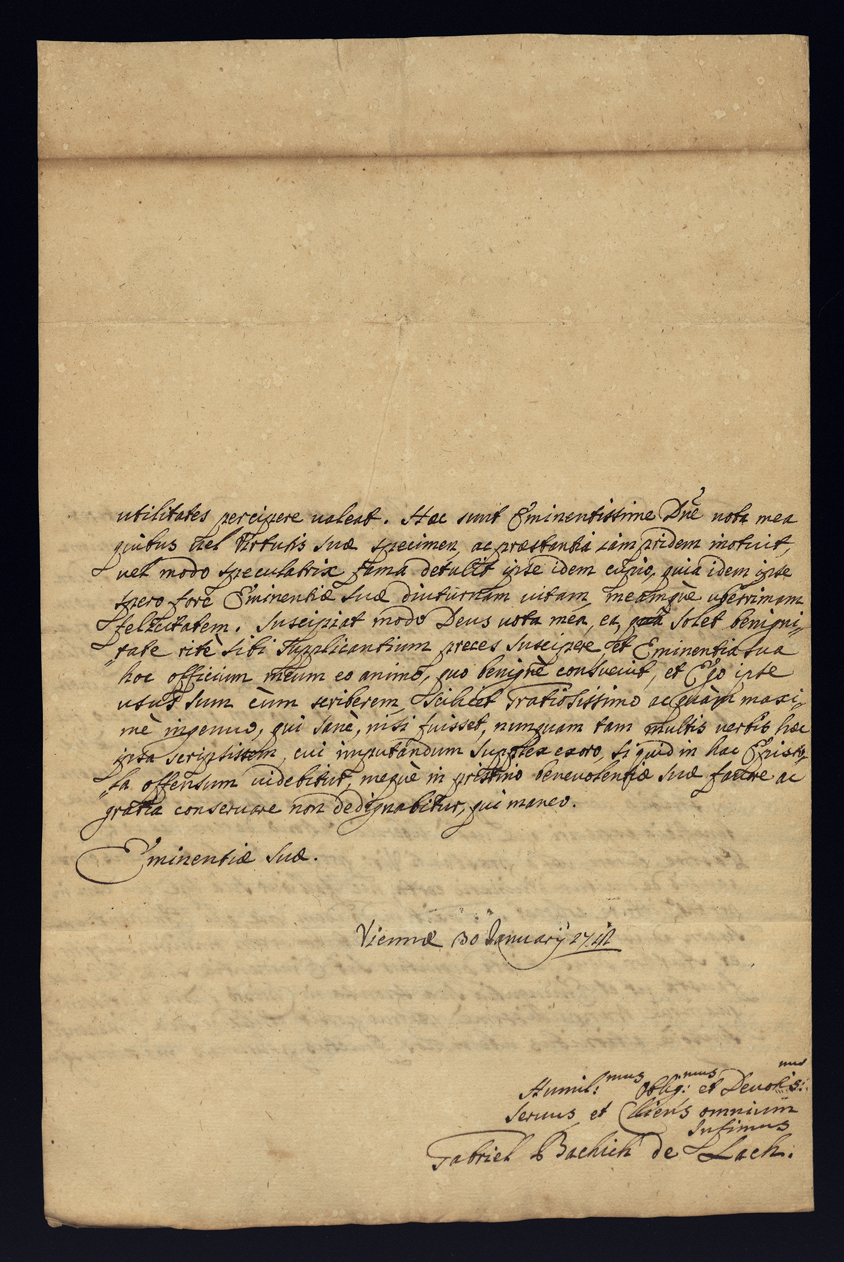 utilitates percipere valeat. Hæc sunt Eminentissime Dne vota mea
quibus vel Virtutis suæ specimen, ac præstantia iampridem inotuit,
vel modo speculatrix fama detulit ipse idem cupio, quia idem ipse
spero fore Eminentiæ Suæ diuturnam vitam, meamque uberrimam
felicitatem. Suscipiat modo Deus vota mea, ea, qua solet benigni„
„tate rite sibi supplicantium preces suscipere et Eminentia sua
hoc officium meum eo animo, quo benigne consuevit, et Ego ipse
usus sum cum scriberem, scilicet gratiosissimo ac quam maxi„
mè ingenuo, qui sanè, nisi fuisset, nunquam tam multis verbis hæc
ipsa scripsissem, cui imputandum supplex exoro, si quid in hac Episto„
„la offensum videbitur, meque in pristino benevolentiæ suæ favore ac
gratia conservare non dedignabitur, qui maneo.
Eminentiæ Suæ.
Viennæ 30 January
Humil:mus Oblig:mus et Devotis:mus
servus et Cliens omnium
Infimus
Gabriel Bachich de Lach.